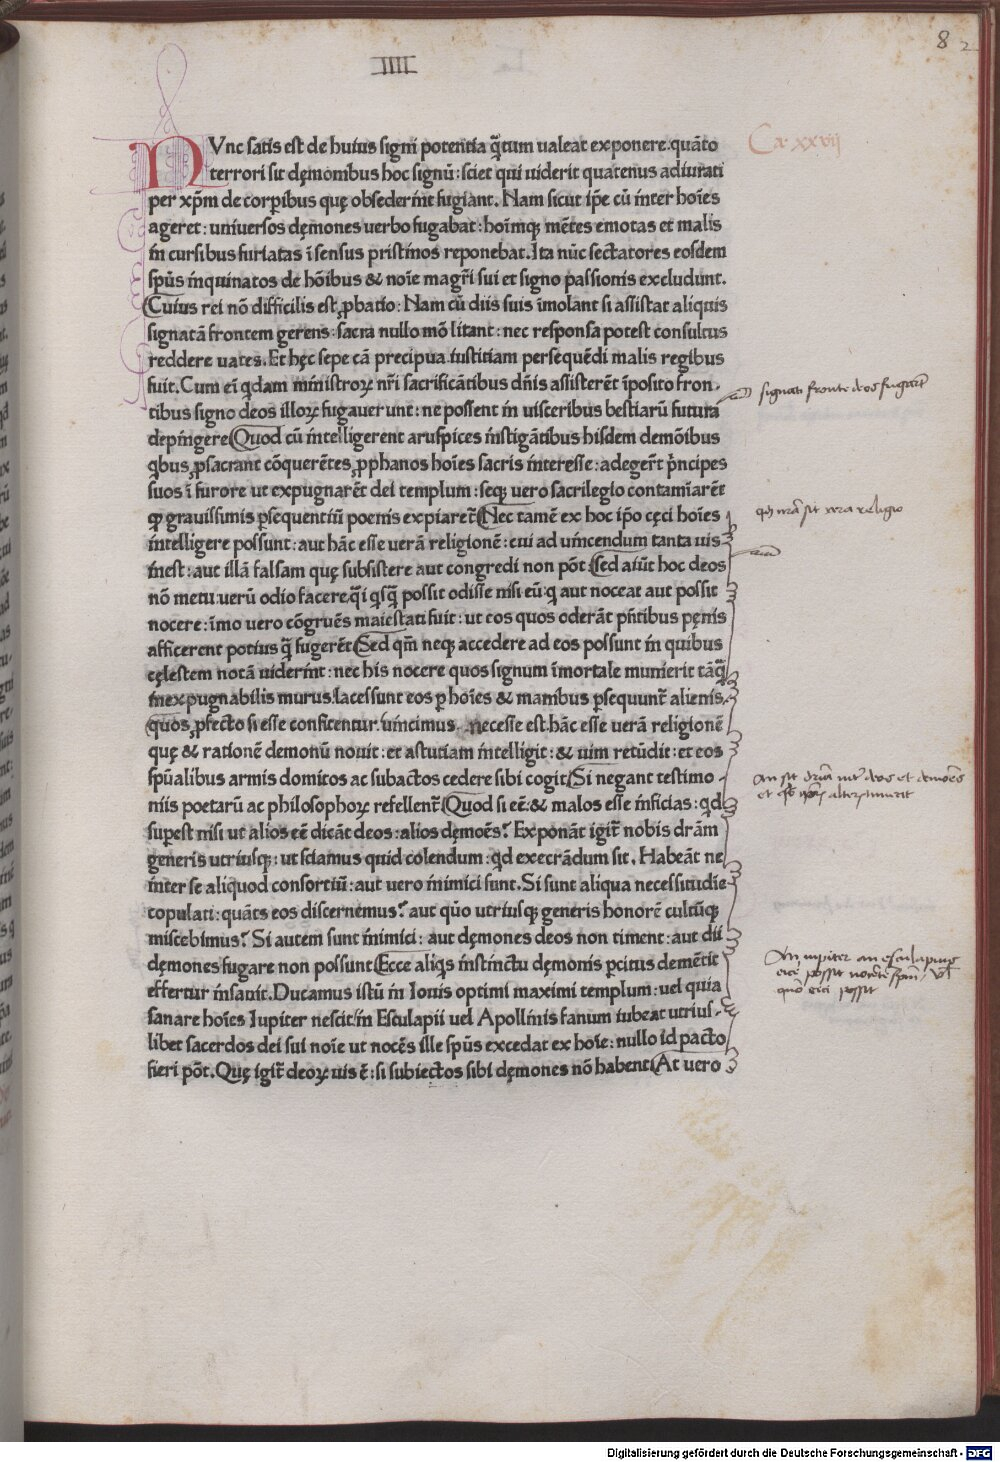 IIII
8 2
Ca. xxvij
NVnc satis est de huius signi potentia q̃tum ualeat exponere. quãto
terrori sit dęmonibus hoc signũ: sciet qui uiderit quatenus adiurati
per xp̃m de corꝑibus quę obsederint fugiant. Nam sicut ip̃e cũ inter hoĩes
ageret: uniuersos dęmones uerbo fugabat: hoĩmqꝫ mẽtes emotas et malis
in cursibus furiatas ĩ sensus pristinos reponebat. Ita nũc sectatores eosdem
sp̃us inquinatos de hõibus & noĩe magr̃i sui et signo passionis excludunt.
Cuius rei nõ difficilis est ꝓbatio: Nam cũ diis suis ĩmolant si assistat aliquis
signatã frontem gerens: sacra nullo mõ litant: nec responsa potest consultus
reddere uates. Et hęc sepe cã precipua iustitiam persequẽdi malis regibus
fuit. Cum eñ qdam ministroꝝ nr̃i sacrificãtibus dñis assisterẽt ĩposito fron-
tibus signo deos illoꝝ fugauerunt: ne possent in uisceribus bestiarũ futura
depingere Quod cũ intelligerent aruspices instigãtibus hisdem demõibus
qbus ꝓsacrant cõquerẽtes ꝓphanos hoĩes sacris interesse: adegert̃ pñcipes
suos ĩ furore ut expugnarẽt dei templum: seqꝫ uero sacrilegio contamiarẽt
qꝫ grauissimis ꝑsequentiũ poenis expiaret̃ Nec tamẽ ex hoc ip̃o cęci hoĩes
intelligere possunt: aut hãc esse uerã religionẽ: cui ad uincendum tanta uis
inest: aut illã falsam quę subsistere aut congredi non põt Sed aiũt hoc deos
nõ metu: uerũ odio facere. q̃i qsq̃ possit odisse nisi eũ: q aut noceat aut possit
nocere: ĩmo uero cõgruẽs maiestati fuit: ut eos quos oderãt pñtibus pęnis
afficerent potius q̃ fugerẽt Sed qm̃ neqꝫ accedere ad eos possunt in quibus
cęlestem notã uiderint: nec his nocere quos signum ĩmortale munierit tãq̃
inexpugnabilis murus: lacessunt eos ꝑ hoĩes & manibus ꝑsequunt̃ alienis.
quos ꝓfecto si esse confitentur. uincimus. necesse est hãc esse uerã religionẽ
quę & rationẽ demonũ nouit: et astutiam intelligit: & uim retũdit: et eos
sp̃ualibus armis domitos ac subactos cedere sibi cogit Si negant testimo-
niis poetarũ ac philosophoꝝ refellent̃ Quod si eẽ: & malos esse inficias: qd
suꝑest nisi ut alios eẽ dicãt deos: alios dęmoẽs? Exponãt igit̃ nobis dr̃am
generis utriusqꝫ: ut sciamus quid colendum: qd execrãdum sit. Habeãt ne
inter se aliquod consortiũ: aut uero inimici sunt. Si sunt aliqua necessitudĩe
copulati: quãts eos discernemus? aut quo utriusqꝫ generis honorẽ cultũqꝫ
miscebimus? Si autem sunt inimici: aut dęmones deos non timent: aut dii
dęmones fugare non possunt Ecce aliqs instinctu dęmonis ꝑcitus demẽtit
effertur insanit. Ducamus istũ in Iouis optimi maximi templum: uel quia
sanare hoĩes Iupiter nescit: in Esculapii uel Apollinis fanum iubeat utrius-
libet sacerdos dei sui noĩe ut nocẽs ille sp̃us excedat ex hoĩe: nullo id pacto
fieri põt. Quę igit̃ deoꝝ uis ẽ: si subiectos sibi dęmones nõ habent At uero
signati fronte deos fugart̃
qꝫ nr̃a sit vera religio
An sit dr̃ia int̃ deos et demoẽs
An iupiter an esculapius
Digitalisierung gefördert durch die Deutsche Forschungsgemeinschaft - DFG